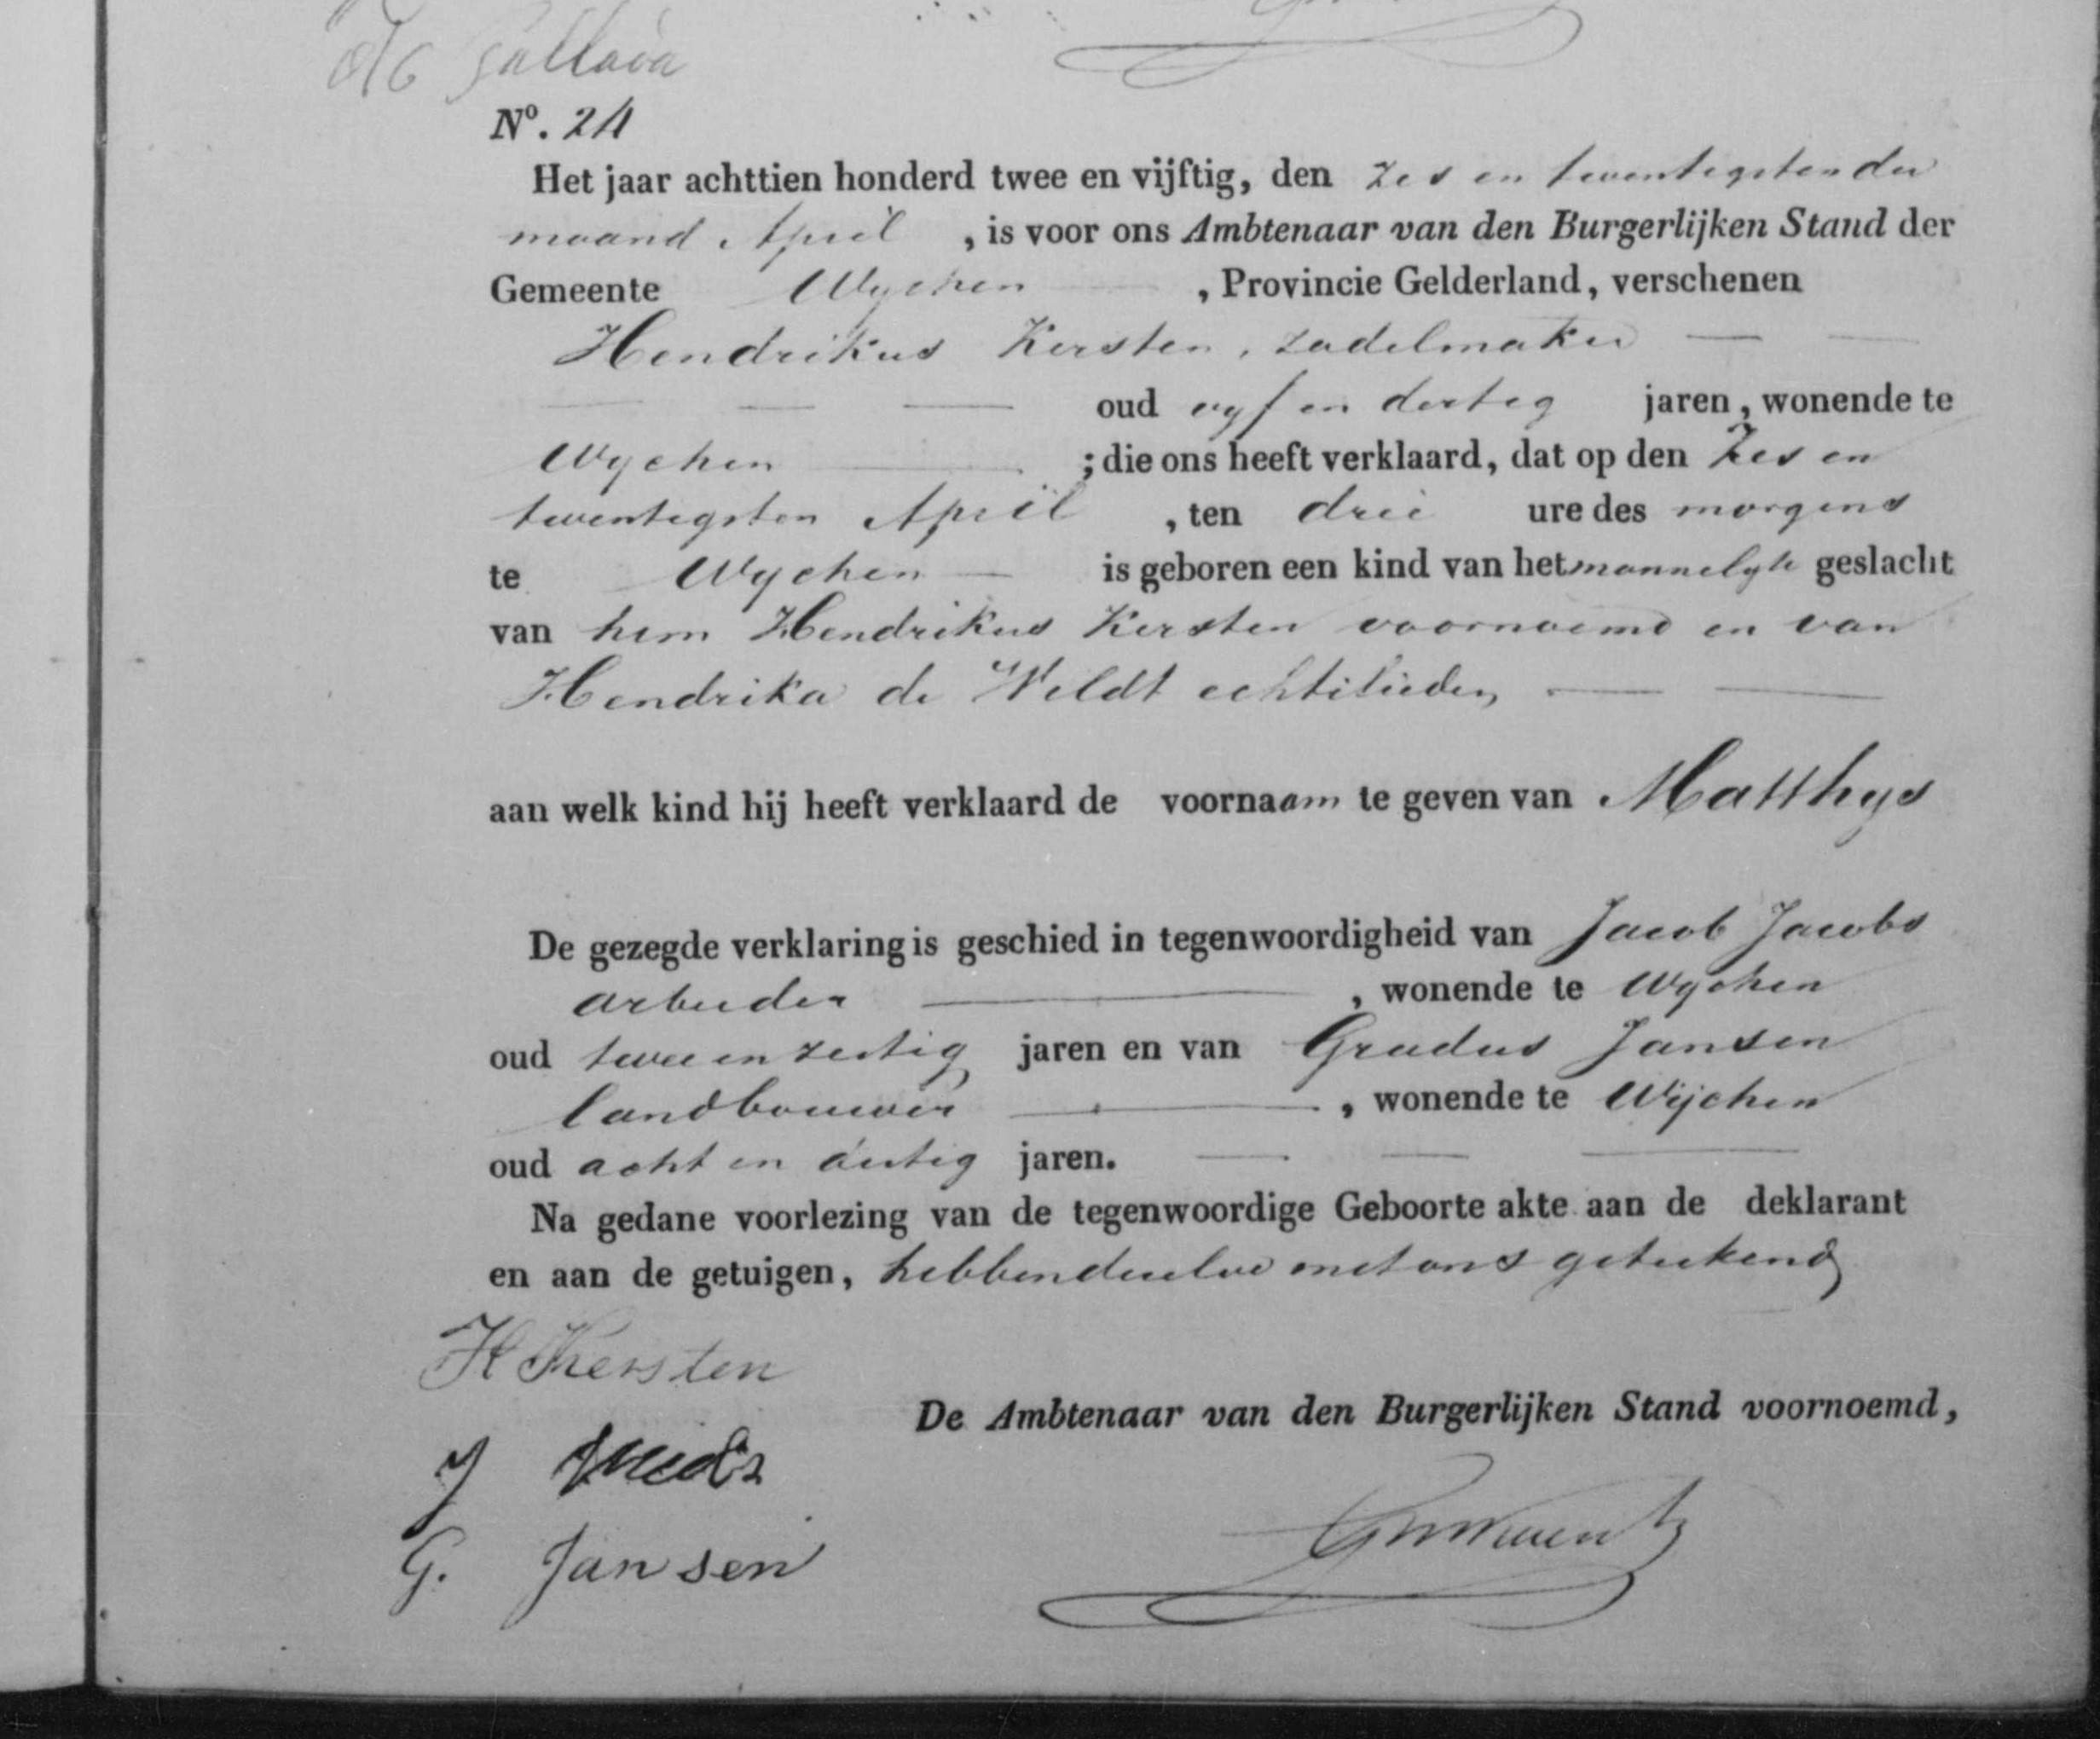 N°. 24
Het jaar achttien honderd twee en vijftig, den zes en twentigsten der
maand April , is voor ons Ambtenaar van den Burgerlijken Stand der
Gemeente Wychen , Provincie Gelderland, verschenen
Hendrikus Kersten, zadelmaker
oud vyf en dertig jaren, wonende te
Wychen ; die ons heeft verklaard, dat op den zes en
twentigsten April , ten drie ure des morgens
te Wychen is geboren een kind van het mannelyk geslacht
van hem Hendrikus Kersten voornoemd en van
Hendrika de Weldt echtelieden,
aan welk kind hij heeft verklaard de voornaam te geven van Matthys
De gezegde verklaring is geschied in tegenwoordigheid van Jacob Jacobs
arbeider , wonende te Wychen
oud twee en zestig jaren en van Gradus Jansen
landbouwer , wonende te Wijchen
oud acht en dertig jaren.
Na gedane voorlezing van de tegenwoordige Geboorte akte aan de deklarant
en aan de getuigen, hebben dezelve met ons geteekend
H Kersten
De Ambtenaar van den Burgerlijken Stand voornoemd,
J
G. Jansen